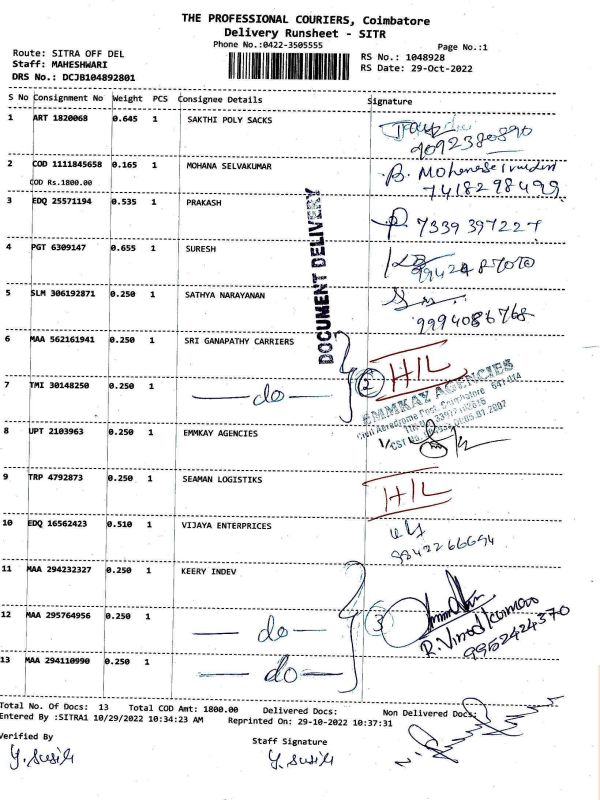 THE PROFESSIONAL COURIERS, Coimbatore
Delivery Runsheet - SITR
Phone No.:0422-3505555
Page No.:1
Route: SITRA OFF DEL
Staff: MAHESHWARI
DRS No.: DCJB104892801
RS No.: 1048928
RS Date: 29-Oct-2022
S No Consignment No Weight PCS Consignee Details Signature
1 ART 1820068 0.645 1 SAKTHI POLY SACKS
9092380890
2 COD 1111845658 0.165 1 MOHANA SELVAKUMAR
COD Rs.1800.00
7418298499
3 EDQ 25571194 0.535 1 PRAKASH
P. 7339397227
DOCUMENT DELIVERY
4 PGT 6309147 0.655 1 SURESH
5 SLM 306192871 0.250 1 SATHYA NARAYANAN
9994086768
6 MAA 562161941 0.250 1 SRI GANAPATHY CARRIERS
2 H/L
7 TMI 30148250 0.250 1 — do —
EMMKAY AGENCIES
Civil Aerodrome Post, Coimbatore 641 014
8 UPT 2103963 0.250 1 EMMKAY AGENCIES
9 TRP 4792873 0.250 1 SEAMAN LOGISTIKS
H/L
10 EDQ 16562423 0.510 1 VIJAYA ENTERPRICES
9842266694
11 MAA 294232327 0.250 1 KEERY INDEV
12 MAA 295764956 0.250 1 — do —
3
R. Vinodkumar
9952424370
13 MAA 294110990 0.250 1 — do —
Total No. Of Docs: 13 Total COD Amt: 1800.00 Delivered Docs: Non Delivered Docs:
Entered By :SITRA1 10/29/2022 10:34:23 AM Reprinted On: 29-10-2022 10:37:31
Verified By
Staff Signature
Y. Susik
Y. Susik